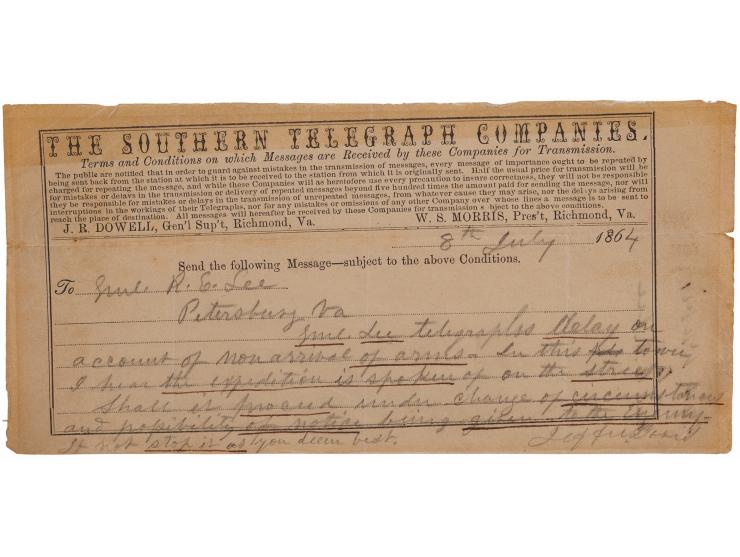 THE SOUTHERN TELEGRAPH COMPANIES.
Terms and Conditions on which Messages are Received by these Companies for Transmission.
The public are notified that in order to guard against mistakes in the transmission of messages, every message of importance ought to be repeated by
being sent back from the station at which it is to be received to the station from which it is originally sent. Half the usual price for transmission will be
charged for repeating the message, and while these Companies will as heretofore use every precaution to insure correctness, they will not be responsible
for mistakes or delays in the transmission or delivery of repeated messages beyond five hundred times the amount paid for sending the message, nor will
they be responsible for mistakes or delays in the transmission of unrepeated messages, from whatever cause they may arise, nor for delays arising from
interruptions in the workings of their Telegraphs, nor for any mistakes or omissions of any other Company over whose lines a message is to be sent to
reach the place of destination. All messages will hereafter be received by those Companies for transmission subject to the above conditions.
J. R. DOWELL, Gen'l Sup't, Richmond, Va. W. S. MORRIS, Pres't, Richmond, Va.
8th July 1864
Send the following Message—subject to the above Conditions.
To Genl. R. E. Lee
Petersburg Va
Genl Lee telegraphs delay on
account of non arrival of arms. In this town
I hear the expedition is spoken of on the streets
Shall it proceed under change of circumstances
and possibility of notice being given to the enemy-
If not stop it as you deem best. Jeffn Davis